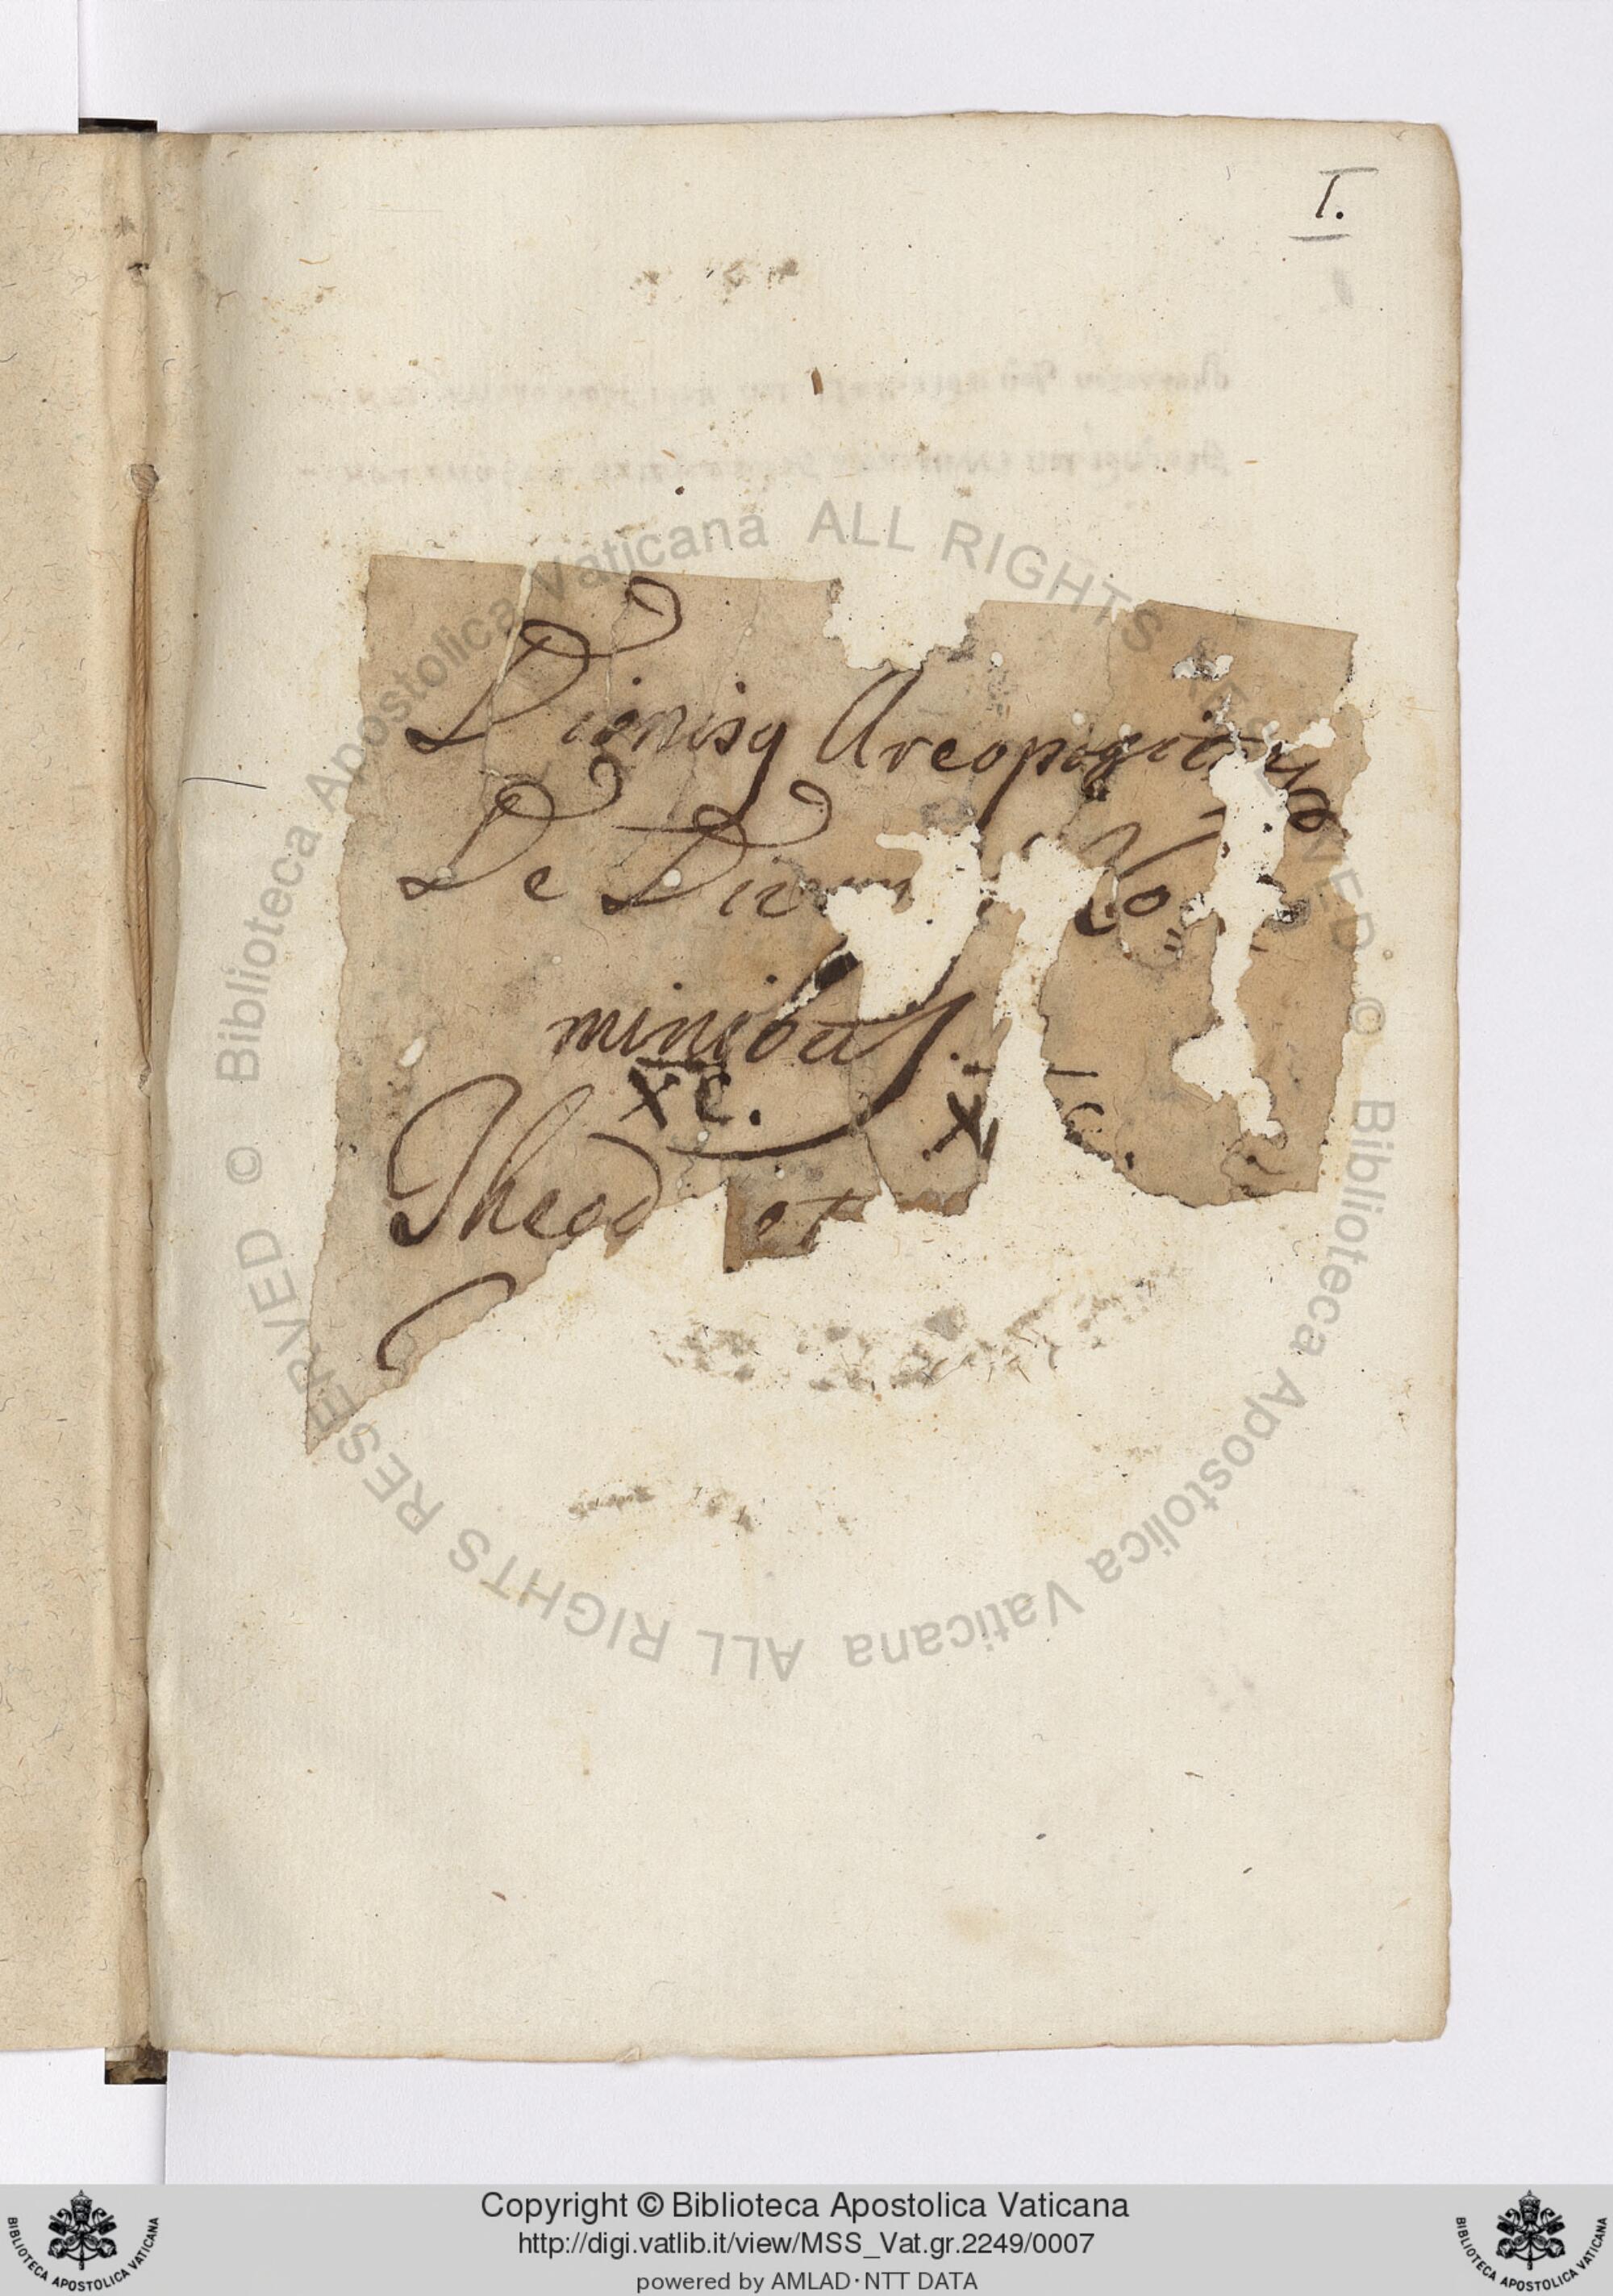 I.
Dionisy Areopagitæ
De Divin No
minibus.
XC. X C.
Theod et
© Biblioteca Apostolica Vaticana ALL RIGHTS RESERVED
© Biblioteca Apostolica Vaticana ALL RIGHTS RESERVED
Copyright © Biblioteca Apostolica Vaticana
http://digi.vatlib.it/view/MSS_Vat.gr.2249/0007
powered by AMLAD·NTT DATA
BIBLIOTECA APOSTOLICA VATICANA
BIBLIOTECA APOSTOLICA VATICANA